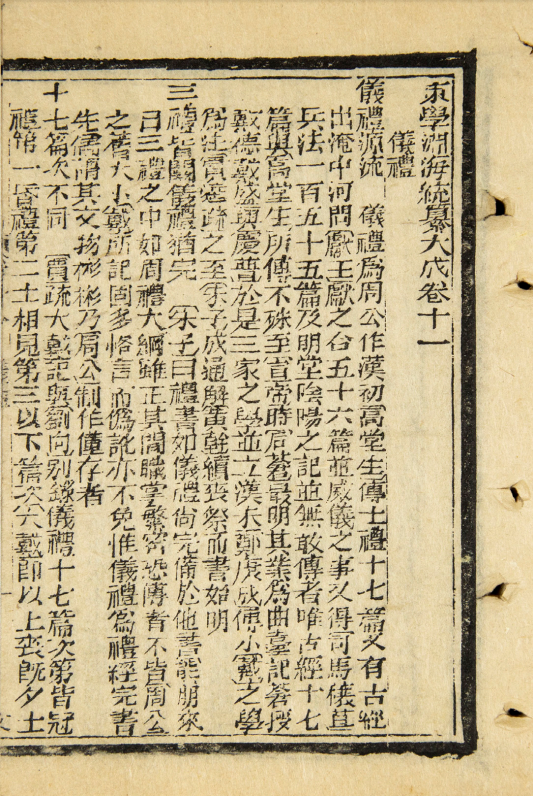 求學淵海統纂大成卷十一
儀禮
儀禮源流　儀禮爲周公作漢初高堂生傳士禮十七篇又有古經
出淹中河間獻王獻之合五十六篇並威儀之事又得司馬穰苴
兵法一百五十五篇及明堂陰陽之記並無敢傳者唯古經十七
篇與高堂生所傳不殊至宣帝時后蒼最明其業爲曲臺記蒼授
戴德戴盛與慶普於是三家之學並立漢末鄭康成傳小戴之學
爲注賈逵疏之至朱子成通解黃幹續喪祭而書始明
三禮皆闕儀禮猶完　朱子曰禮書如儀禮尚完備於他書能朋來
曰三禮之中如周禮大綱雖正其間職掌繁密恐傳者不皆周公
之舊大小戴所記固多格言而僞訛亦不免惟儀禮爲禮經完書
先儒謂其文物彬彬乃周公制作僅存者
十七篇次不同　賈疏大戴記與劉向別錄儀禮十七篇次第皆冠
禮第一昏禮第二士相見第三以下篇次大戴即以士喪旣夕士